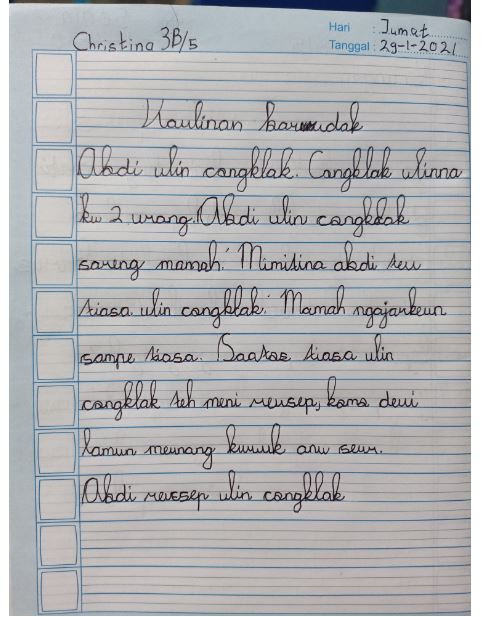 Hari : Jumat
Christina 3B/5
Tanggal : 29-1-2021
Kaulinan barudak
Abdi ulin congklak. Congklak ulinna
ku 2 urang. Abdi ulin congklak
sareng mamah. Mimitina abdi teu
tiasa ulin congklak. Mamah ngajarkeun
sampe tiasa. Saatos tiasa ulin
congklak teh meni reusep, komo deui
lamun meunang kuwuk anu seur.
Abdi reussep ulin congklak